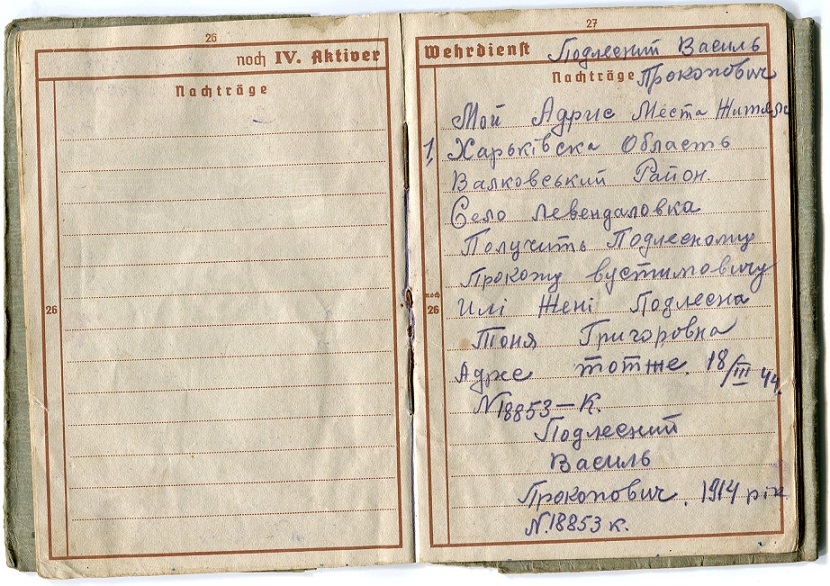 26
noch IV. Aktiver
Nachträge
26
27
Wehrdienst Подлесний Василь
Nachträge Прокопович
Мой Адрис Места Жител
1, Харьківска Область
Валковський Район.
Село Левендаловка
Получить Подлесному
Прокопу вустимовичу
noch
26
Илі Жені Подлесна
Тоня Григоровка
Адрже тотже. 18/III 44.
N18853-К.
Подлесний
Василь
Прокопович. 1914 рік
N.18853 к.